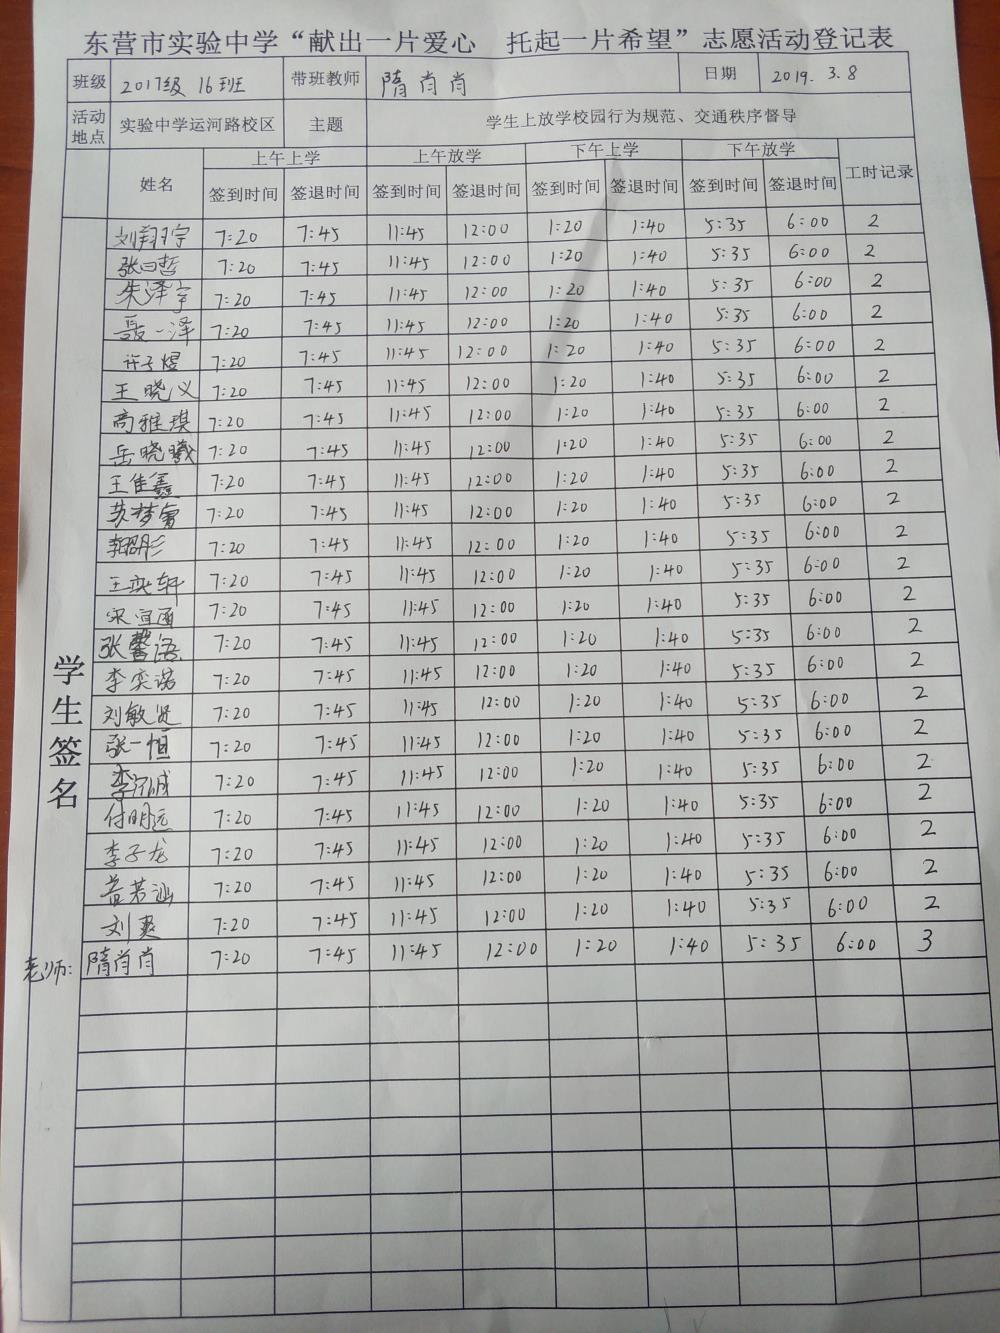 东营市实验中学“献出一片爱心 托起一片希望”志愿活动登记表
班级 2017级 16班 带班教师 隋肖肖 日期 2019. 3.8
活动地点 实验中学运河路校区 主题 学生上放学校园行为规范、交通秩序督导
姓名 上午上学 上午放学 下午上学 下午放学 工时记录
签到时间 签退时间 签到时间 签退时间 签到时间 签退时间 签到时间 签退时间
学生签名
刘翔宇 7:20 7:45 11:45 12:00 1:20 1:40 5:35 6:00 2
张曰哲 7:20 7:45 11:45 12:00 1:20 1:40 5:35 6:00 2
朱泽宇 7:20 7:45 11:45 12:00 1:20 1:40 5:35 6:00 2
聂一泽 7:20 7:45 11:45 12:00 1:20 1:40 5:35 6:00 2
许子煜 7:20 7:45 11:45 12:00 1:20 1:40 5:35 6:00 2
王晓义 7:20 7:45 11:45 12:00 1:20 1:40 5:35 6:00 2
高雅琪 7:20 7:45 11:45 12:00 1:20 1:40 5:35 6:00 2
岳晓曦 7:20 7:45 11:45 12:00 1:20 1:40 5:35 6:00 2
王佳鑫 7:20 7:45 11:45 12:00 1:20 1:40 5:35 6:00 2
7:20 7:45 11:45 12:00 1:20 1:40 5:35 6:00 2
7:20 7:45 11:45 12:00 1:20 1:40 5:35 6:00 2
王奕轩 7:20 7:45 11:45 12:00 1:20 1:40 5:35 6:00 2
宋宜函 7:20 7:45 11:45 12:00 1:20 1:40 5:35 6:00 2
张馨语 7:20 7:45 11:45 12:00 1:20 1:40 5:35 6:00 2
李奕诺 7:20 7:45 11:45 12:00 1:20 1:40 5:35 6:00 2
刘敏贤 7:20 7:45 11:45 12:00 1:20 1:40 5:35 6:00 2
张一恒 7:20 7:45 11:45 12:00 1:20 1:40 5:35 6:00 2
7:20 7:45 11:45 12:00 1:20 1:40 5:35 6:00 2
付明远 7:20 7:45 11:45 12:00 1:20 1:40 5:35 6:00 2
李子龙 7:20 7:45 11:45 12:00 1:20 1:40 5:35 6:00 2
7:20 7:45 11:45 12:00 1:20 1:40 5:35 6:00 2
刘爽 7:20 7:45 11:45 12:00 1:20 1:40 5:35 6:00 2
老师: 隋肖肖 7:20 7:45 11:45 12:00 1:20 1:40 5:35 6:00 3